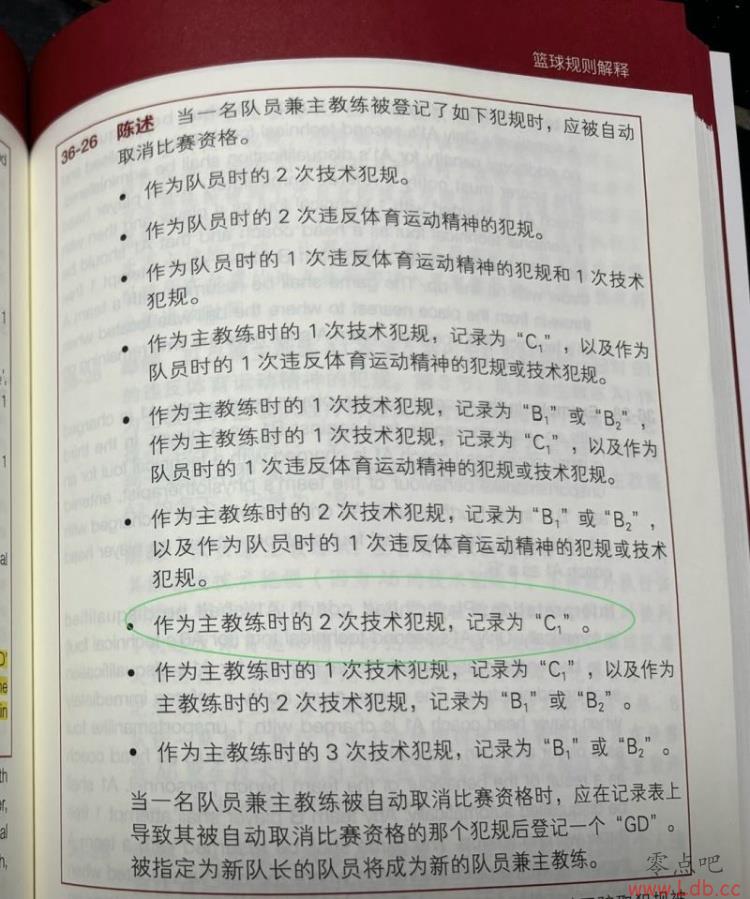 篮球规则解释
36-26 陈述 当一名队员兼主教练被登记了如下犯规时，应被自动
取消比赛资格。
• 作为队员时的 2 次技术犯规。
• 作为队员时的 2 次违反体育运动精神的犯规。
• 作为队员时的 1 次违反体育运动精神的犯规和 1 次技术
犯规。
• 作为主教练时的 1 次技术犯规，记录为“C₁”，以及作为
队员时的 1 次违反体育运动精神的犯规或技术犯规。
• 作为主教练时的 1 次技术犯规，记录为“B₁”或“B₂”，
作为主教练时的 1 次技术犯规，记录为“C₁”，以及作为
队员时的 1 次违反体育运动精神的犯规或技术犯规。
• 作为主教练时的 2 次技术犯规，记录为“B₁”或“B₂”，
以及作为队员时的 1 次违反体育运动精神的犯规或技术
犯规。
• 作为主教练时的 2 次技术犯规，记录为“C₁”。
• 作为主教练时的 1 次技术犯规，记录为“C₁”，以及作为
主教练时的 2 次技术犯规，记录为“B₁”或“B₂”。
• 作为主教练时的 3 次技术犯规，记录为“B₁”或“B₂”。
当一名队员兼主教练被自动取消比赛资格时，应在记录表上
导致其被自动取消比赛资格的那个犯规后登记一个“GD”。
被指定为新队长的队员将成为新的队员兼主教练。
零点吧
www.Ldb.cc